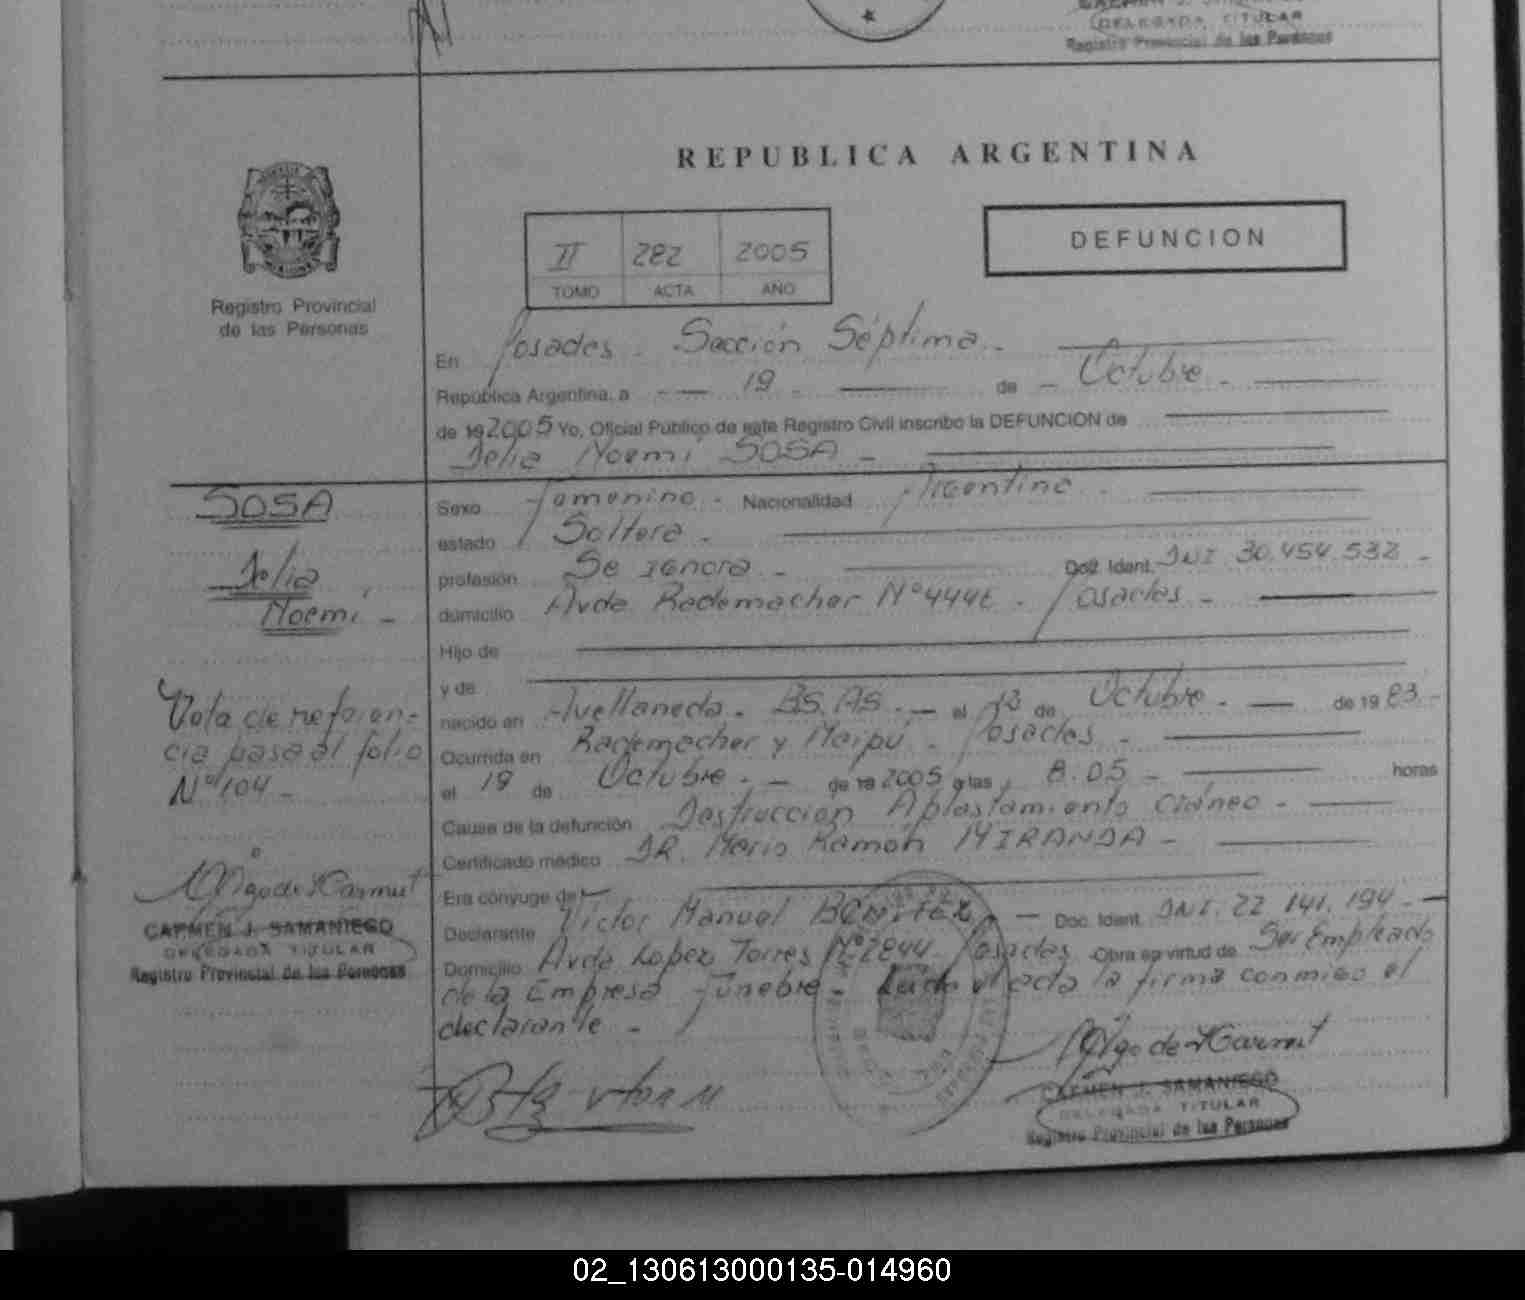 DELEGADA TITULAR
Registro Provincial de las Personas
REPUBLICA ARGENTINA
DEFUNCION
II 282 2005
TOMO ACTA AÑO
Registro Provincial
de las Personas
En Posadas - Sección Séptima -
República Argentina, a 19 de Octubre -
de 19 2005 Yo, Oficial Público de este Registro Civil inscribo la DEFUNCION de
Delia Noemi SOSA -
SOSA
Delia
Noemi -
Sexo Femenino - Nacionalidad Argentina -
estado Soltera -
profesión Se ignora - Doc. Ident. DNI 30.454.532 -
domicilio Avda Rademacher Nº 4446 - Posadas -
Hijo de
y de
nacido en Avellaneda - BS. AS. - el 13 de Octubre - de 19 83 -
Ocurrida en Rademacher y Maipú - Posadas -
el 19 de Octubre - de 19 2005 a las 8.05 - horas
Causa de la defunción Destrucción Aplastamiento Cráneo -
Certificado médico DR. Mario Ramón MIRANDA -
Era cónyuge de
Declarante Victor Manuel BENITEZ - Doc. Ident. DNI. 22.141.194 -
Domicilio Avda Lopez Torres Nº 2844 - Posadas Obra en virtud de Ser Empleado
de la Empresa Fúnebre - Leída el acta la firma conmigo el
declarante -
Nota de referen-
cia pasa al folio
Nº 104 -
CARMEN J. SAMANIEGO
DELEGADA TITULAR
Registro Provincial de las Personas
CARMEN J. SAMANIEGO
DELEGADA TITULAR
Registro Provincial de las Personas
02_130613000135-014960